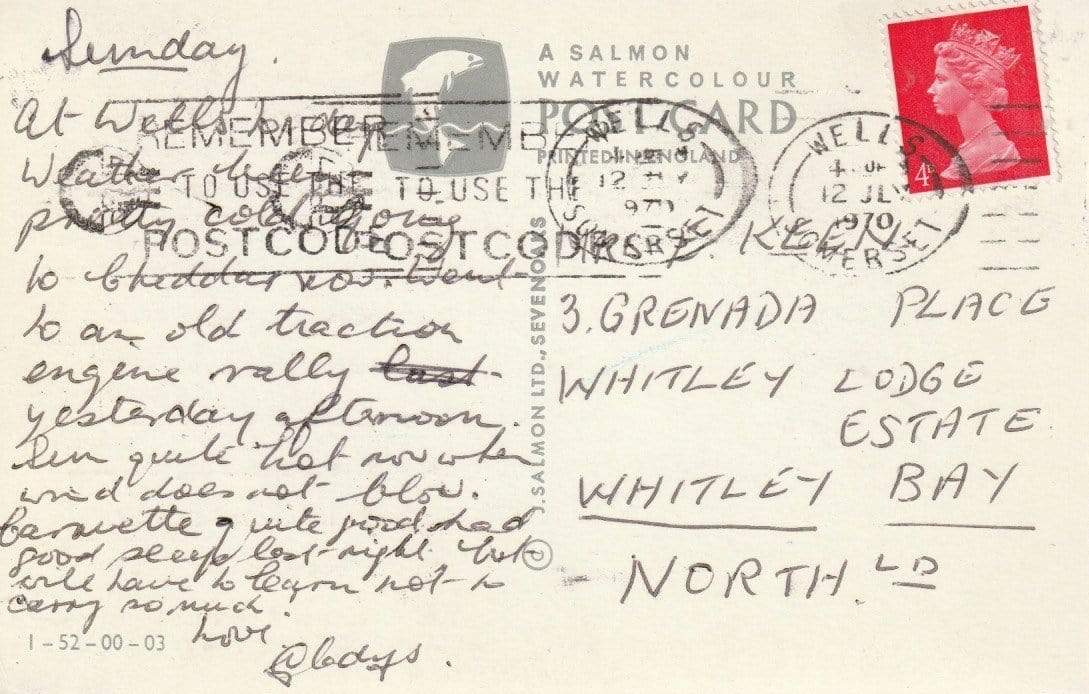 Sunday.
At Wells today
Weather here
pretty cold going
to Cheddar now. Went
to an old traction
engine rally last
yesterday afternoon.
Sun quite hot now when
wind does not blow.
Caravette quite good had
good sleep last night but
will have to learn not to
carry so much.
Love
Gladys.
1-52-00-03
A SALMON
WATERCOLOUR
POST CARD
PRINTED IN ENGLAND
© J. SALMON LTD., SEVENOAKS
REMEMBER REMEMBE
TO USE THE TO USE THE
POSTCODE POSTCODE
WELLS
12 JLY
1970
SOMERSET
WELLS
4
12 JLY
1970
SOMERSET
4D
KEEN
3. GRENADA PLACE
WHITLEY LODGE
ESTATE.
WHITLEY BAY
NORTH. LD